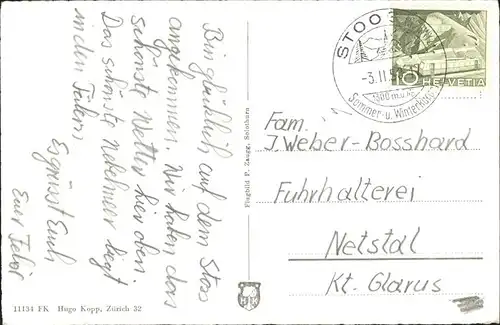 Bin glücklich auf dem Stoos
angekommen. Wir haben das
schönste Wetter hier oben
Das schönste Nebelmeer liegt
in den Tälern.
Es grüsst Euch
Euer
11134 FK Hugo Kopp, Zürich 32
Flugbild P. Zaugg, Solothurn
STOOS
-3.II.5
1300 m.ü.M.
Sommer- u. Winterkurort
10 HELVETIA
Fam.
J. Weber-Bosshard
Fuhrhalterei
Netstal
Kt. Glarus